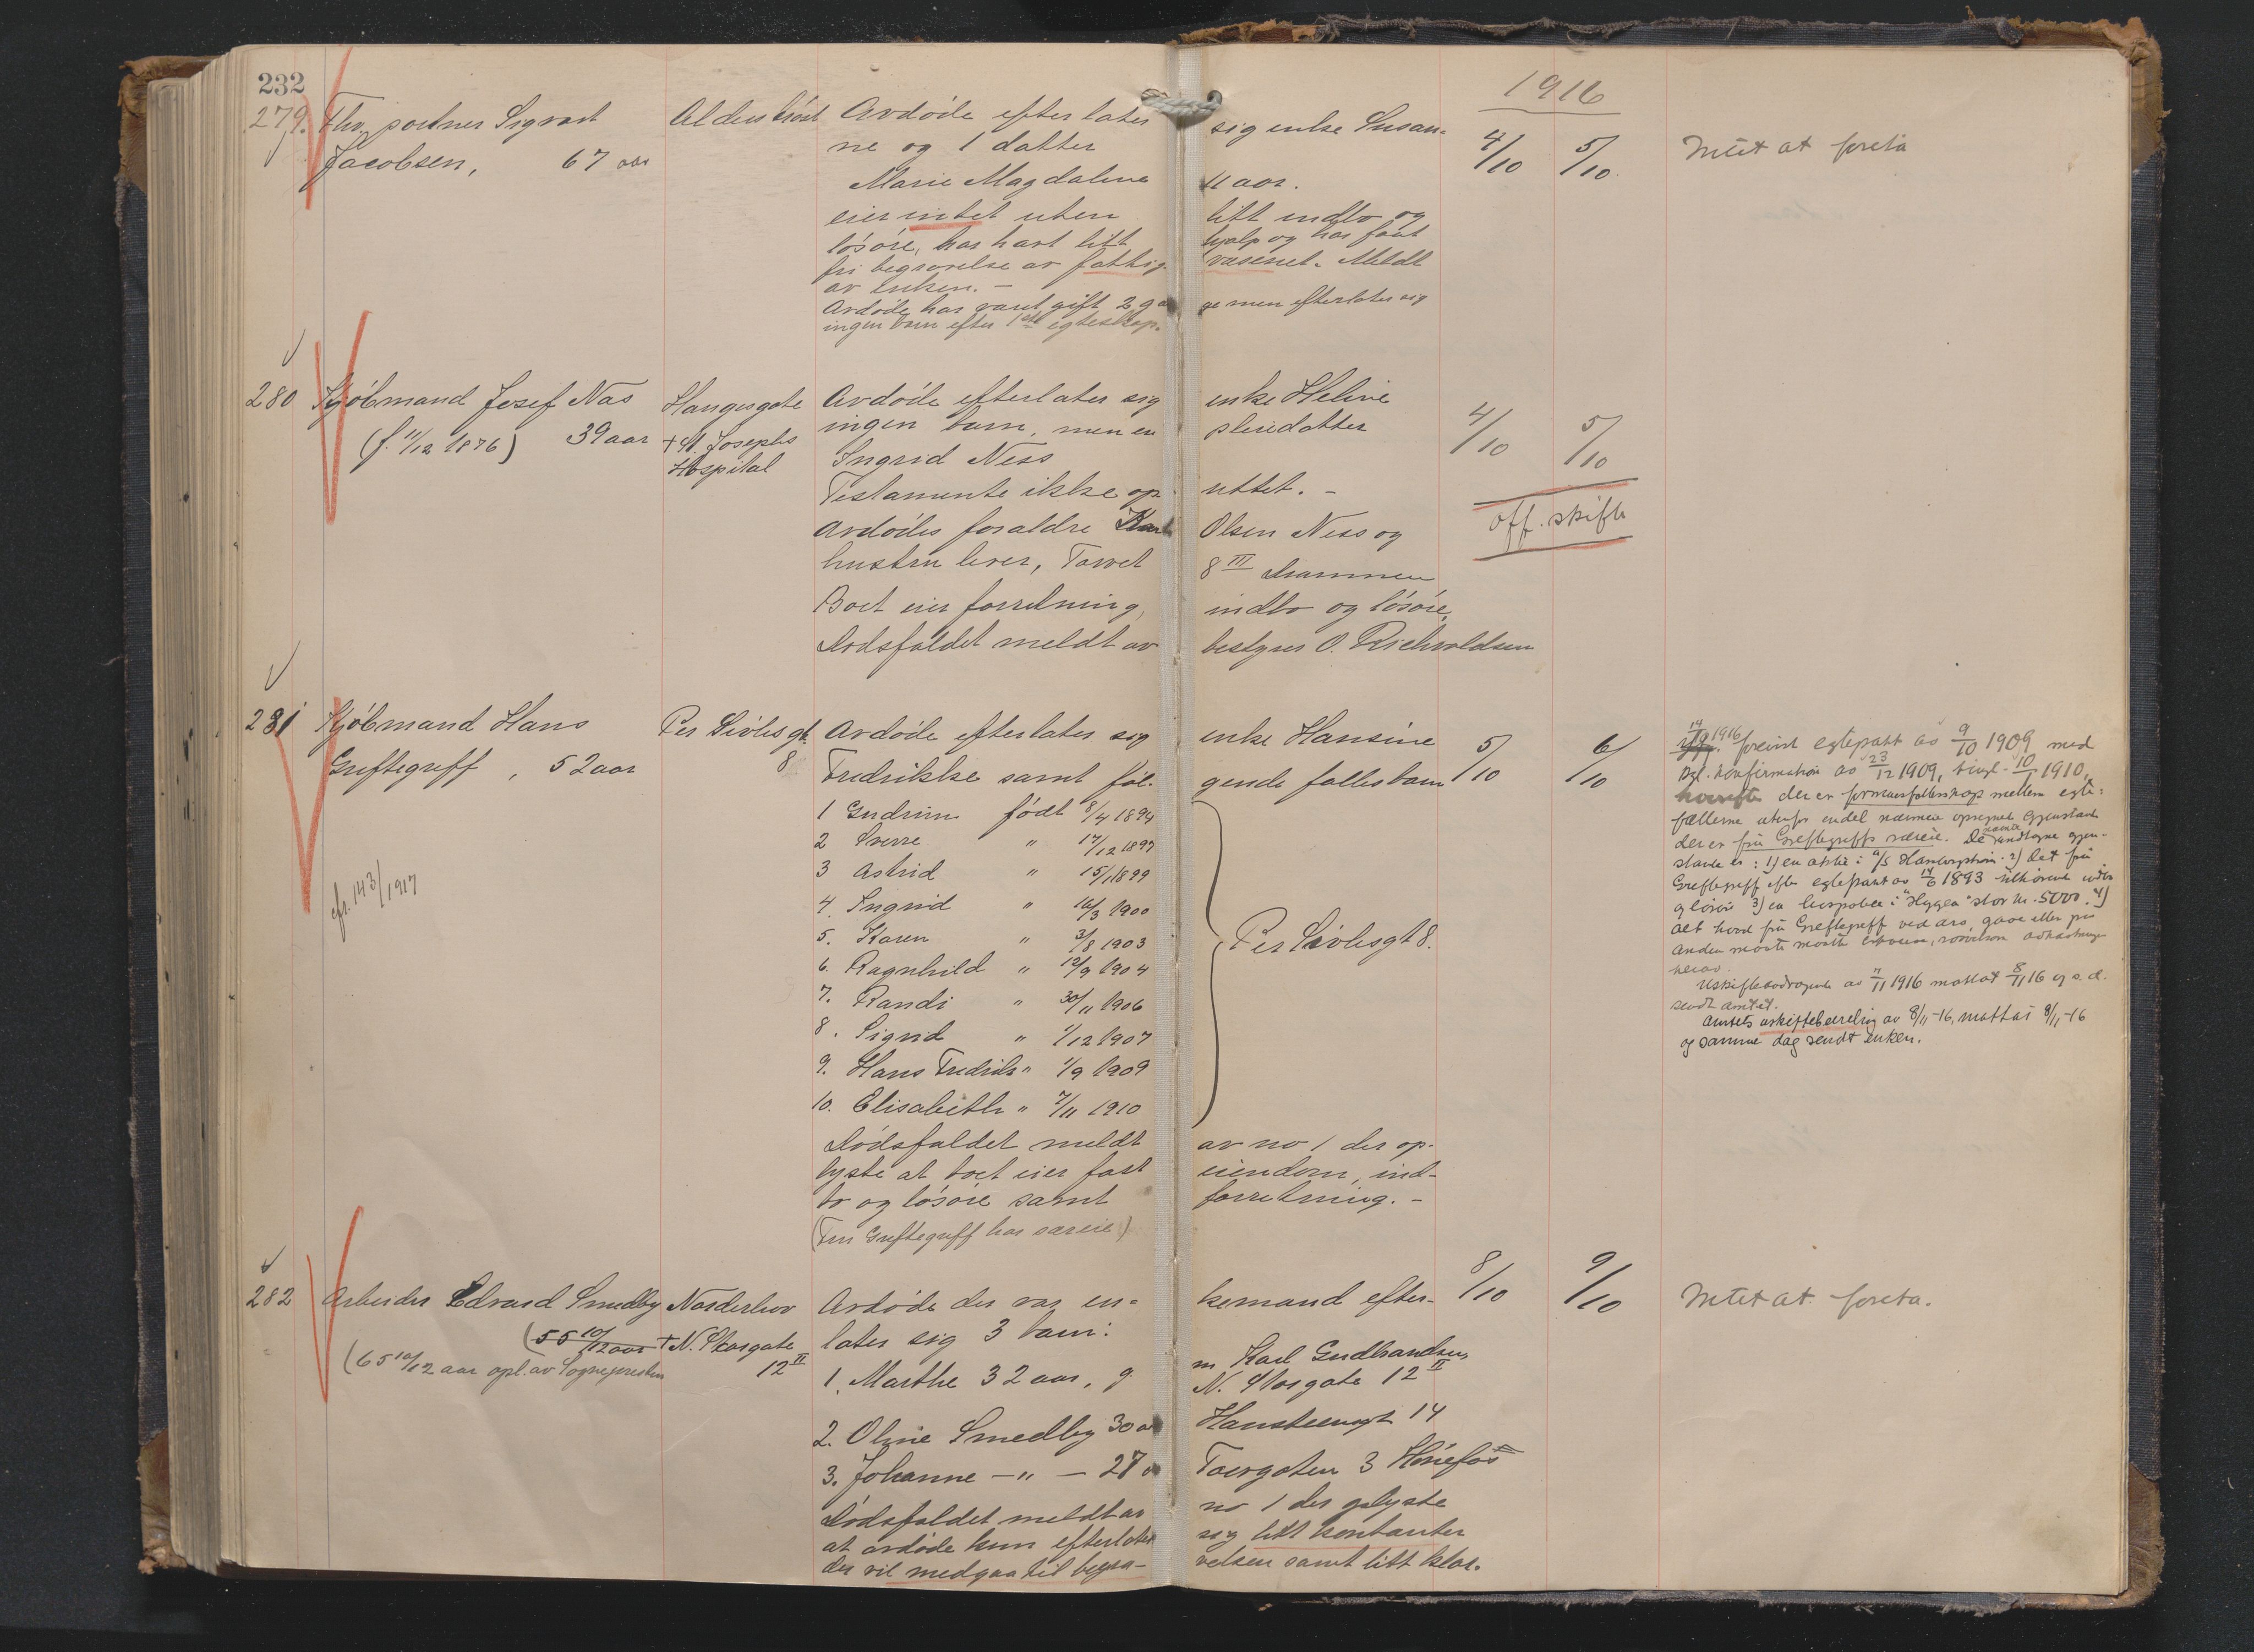 232
1916
279. Fhv. portner Sigvart Alderstrøst Avdøde efterlater sig enke Susan- 4/10 5/10 Intet at foreta
Jacobsen, 67 aar ne og 1 datter
Marie Magdalene 11 aar.
eier intet uten litt indbo og
løsøre, har hat litt hjælp og har faat
fri begravelse av fattig- væsenet. Meldt
av enken. -
Avdøde har været gift 2 gan ge men efterlater sig
ingen barn efter 1ste egteskap.
280 Kjøbmand Josef Næs Haugesgate Avdøde efterlater sig enke Heline 4/10 5/10
(f. 11/12 1876) 39 aar + St. Josephs ingen barn, men en pleiedatter
Hospital Ingrid Ness
Testamente ikke op- rettet. - off. skifte
Avdødes forældre Olsen Ness og
hustru lever, Torvet 8 III Drammen
Boet eier forretning, indbo og løsøre,
Dødsfaldet meldt av bestyrer O. Richvoldsen
281 Kjøbmand Hans Per Sivlesgt. Avdøde efterlater sig enke Hansine 5/10 6/10
Greftegreff, 52 aar 8 Fredrikke samt føl- gende fællesbarn
1 Gudrun født 8/4 1894
2 Sverre " 17/12 1897
3 Astrid " 15/1 1899
4. Ingrid " 16/3 1900
5. Karen " 3/8 1903
6. Ragnhild " 12/9 1904
7. Randi " 30/11 1906
8. Sigrid " 1/12 1907
9. Hans Fredrik " 1/9 1909
10. Elisabeth " 7/11 1910
Per Sivlesgt 8.
cfr. 143/1917
Dødsfaldet meldt av no 1 der op-
lyste at boet eier fast eiendom, ind-
bo og løsøre samt forretning. -
(Fru Greftegreff har særeie)
1916 forevist egtepakt av 9/10 1909 med
kgl. konfirmation av 23/12 1909, tingl. 10/1 1910,
hvorefter der er formuesfællesskap mellem egte-
fællerne utenfor endel nærmere opregnet gjenstande
der er fru Greftegreffs særeie. De nævnte undtagne gjen-
stande er: 1) en aktie i A/S 2) Det fru
Greftegreff efter egtepakt av 14/6 1893 tilhørende indbo
og løsøre 3) en livspolice i "Hygea" stor kr. 5000. 4)
alt hvad fru Greftegreff ved arv, gave eller paa
anden maate maatte erhverve, avkastningen
herav.
Uskiftebodragende av 7/11 1916 mottat 8/11 16 og s.d.
sendt amtet.
Amtets uskiftebevilling av 8/11-16, mottat 8/11-16
og samme dag sendt enken.
282 Arbeider Edvard Smedby Norderhov Avdøde der var en- kemand efter- 8/10 9/10 Intet at foreta.
(55 10/12 aar + N. Storgate later sig 3 barn:
(65 10/12 aar opl. av Sognepresten 12 II
1. Marthe 32 aar, g. m Karl Gudbrandsen,
N. Storgate 12 II
2. Oline Smedby 30 a Hansteensgt 14
3. Johanne - " - 27 a Torvgaten 3 Hønefos
Dødsfaldet meldt av no 1 der oplyste
at avdøde kun efterlater sig litt kontanter
der vil medgaa til begra- velsen samt litt klær.